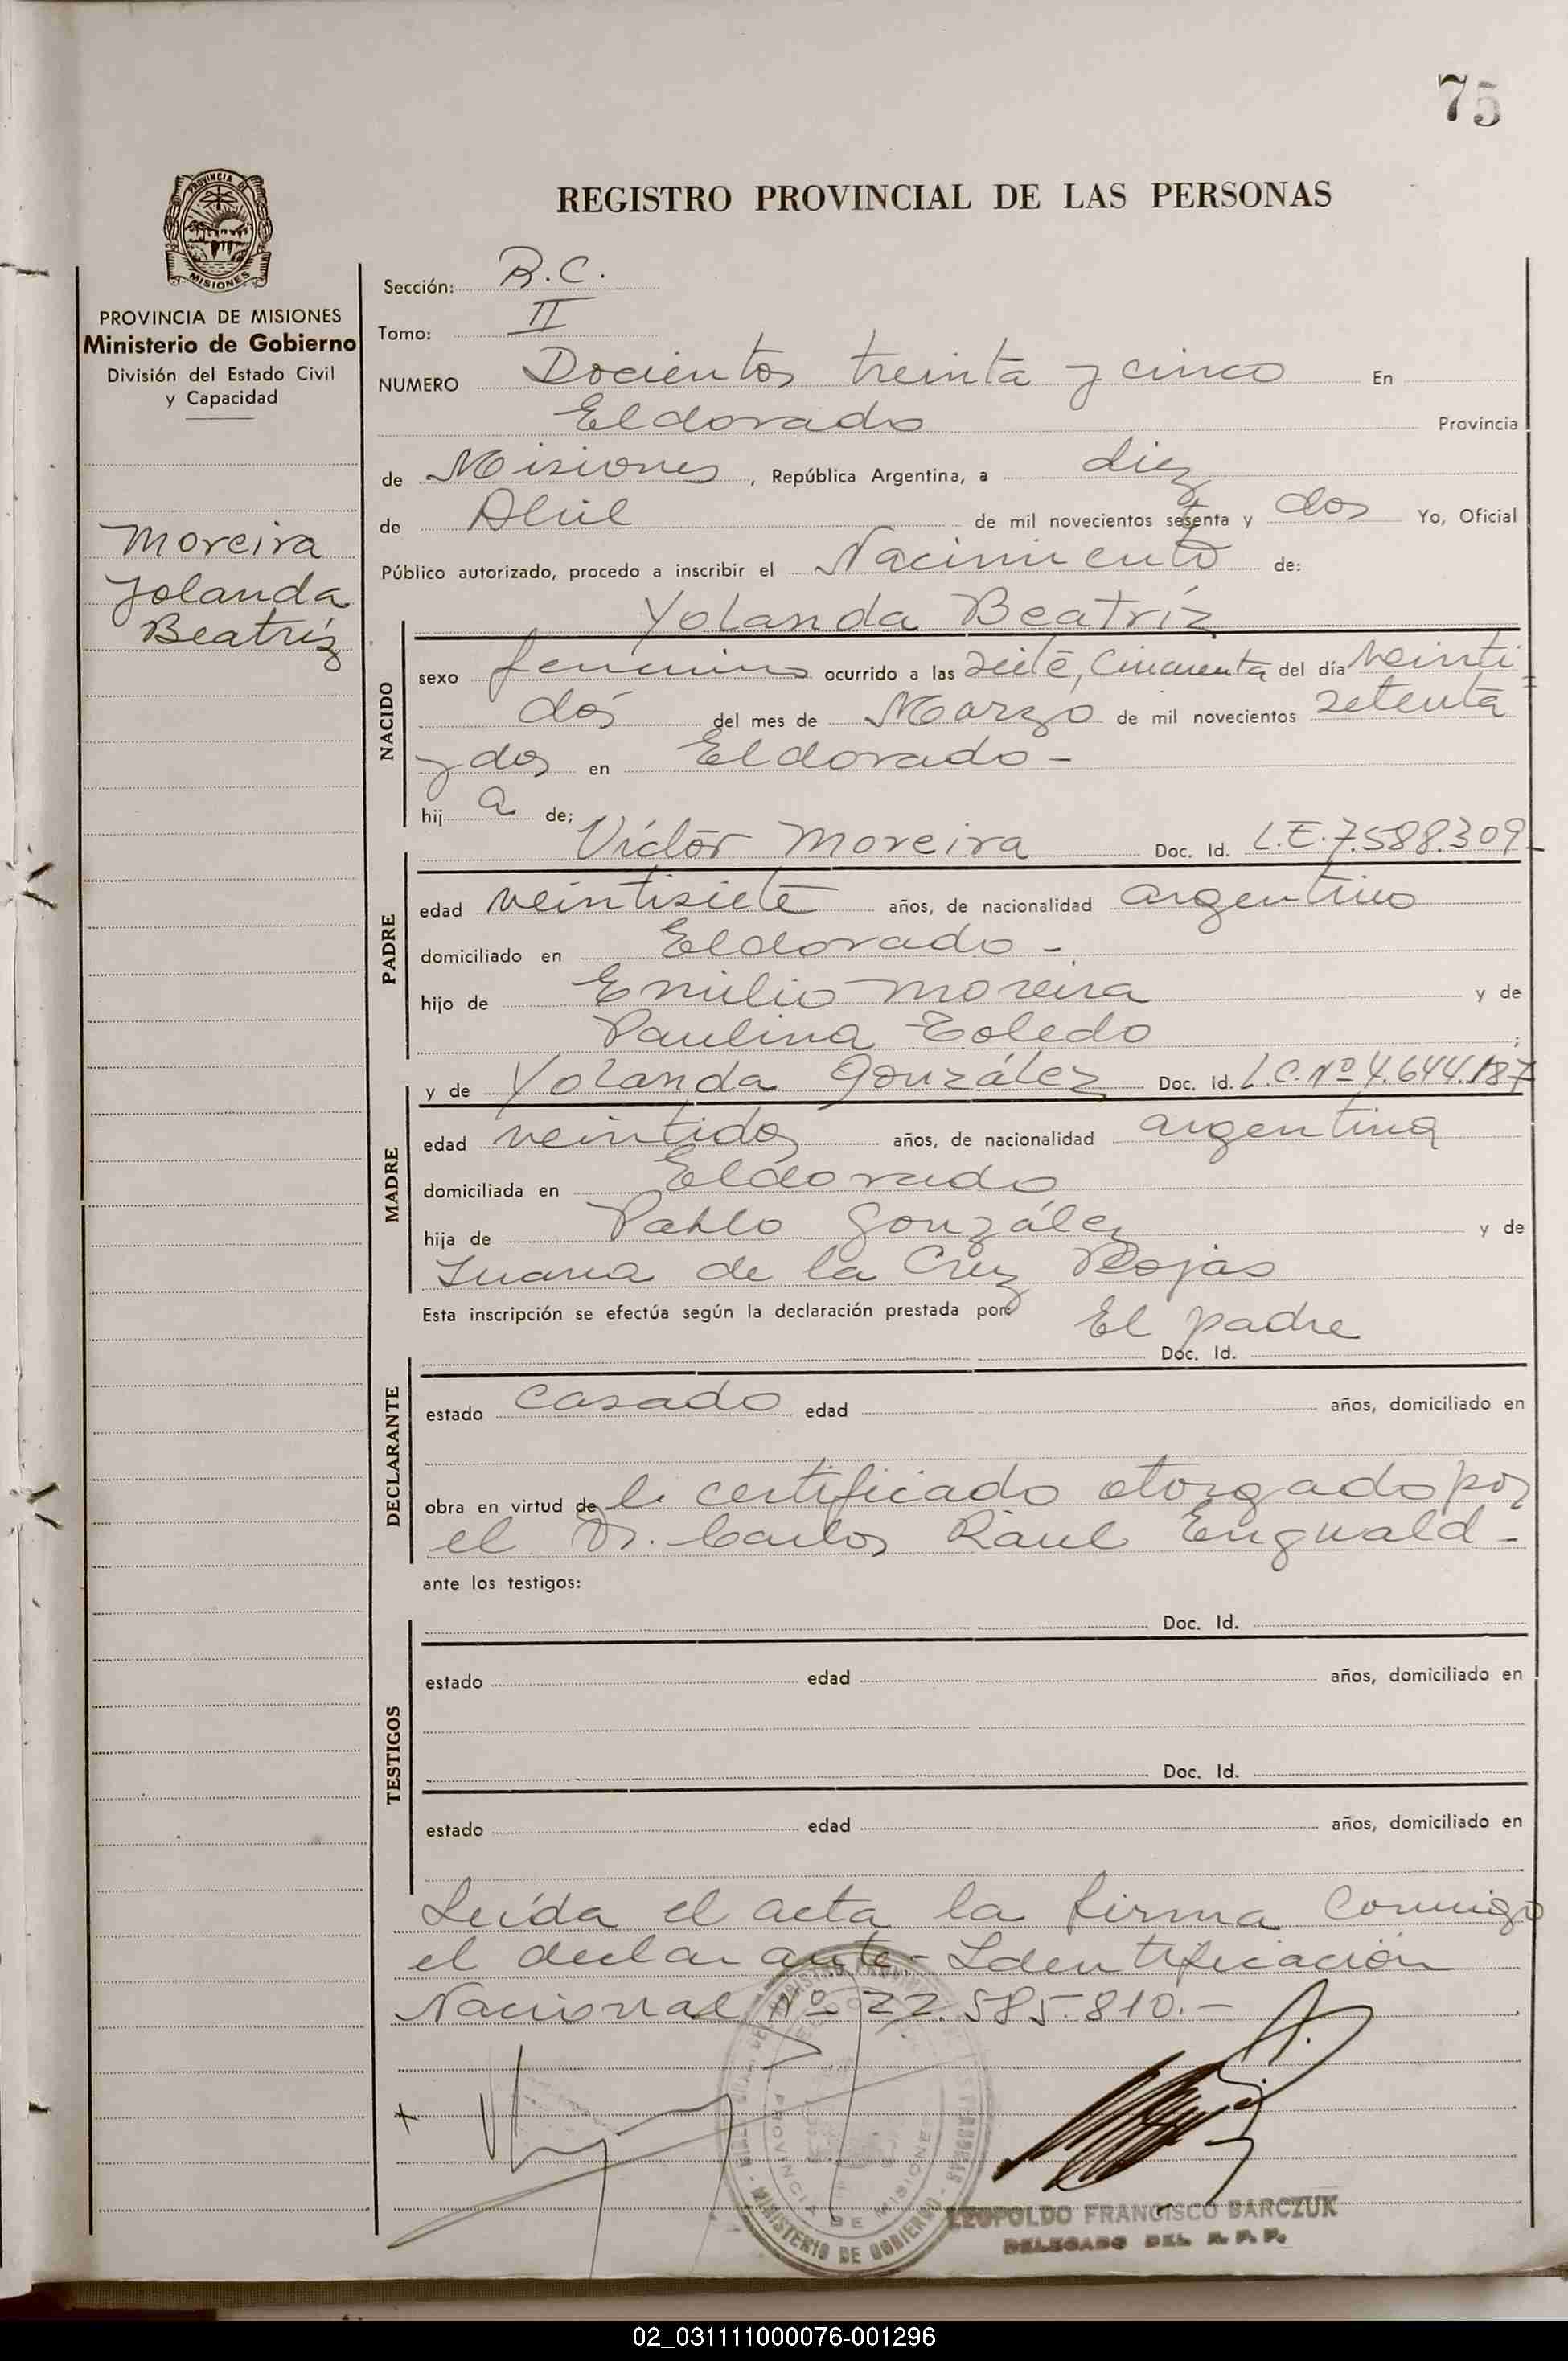 75
PROVINCIA DE
MISIONES
PROVINCIA DE MISIONES
Ministerio de Gobierno
División del Estado Civil
y Capacidad
Moreira
Yolanda
Beatríz
REGISTRO PROVINCIAL DE LAS PERSONAS
Sección: R.C.
Tomo: II
NUMERO Docientos treinta y cinco En
Eldorado Provincia
de Misiones, República Argentina, a diez
de Abril de mil novecientos setenta y dos Yo, Oficial
Público autorizado, procedo a inscribir el Nacimiento de:
Yolanda Beatríz
NACIDO
sexo femenino ocurrido a las siete, cincuenta del día veinti=
dós del mes de Marzo de mil novecientos setenta
y dos en Eldorado -
hija de;
Víctor Moreira Doc. Id. L.E.7.588.309
PADRE
edad veintisiete años, de nacionalidad argentino
domiciliado en Eldorado -
hijo de Emilio Moreira y de
Paulina Toledo ;
y de Yolanda González Doc. Id. L.C.Nº 4.644.187
MADRE
edad veintidos años, de nacionalidad argentina
domiciliada en Eldorado
hija de Pablo González y de
Juana de la Cruz Rojas
Esta inscripción se efectúa según la declaración prestada por: El padre
Doc. Id.
DECLARANTE
estado casado edad años, domiciliado en
obra en virtud de certificado otorgado por
el Dr. Carlos Raul Enguald -
ante los testigos:
Doc. Id.
TESTIGOS
estado edad años, domiciliado en
Doc. Id.
estado edad años, domiciliado en
Leída el acta la firma conmigo
el declarante - Identificación
Nacional Nº 22.585.810.-
PROVINCIA DE MISIONES
MINISTERIO DE GOBIERNO
LEOPOLDO FRANCISCO BARCZUK
DELEGADO DEL R. P. P.
02_031111000076-001296